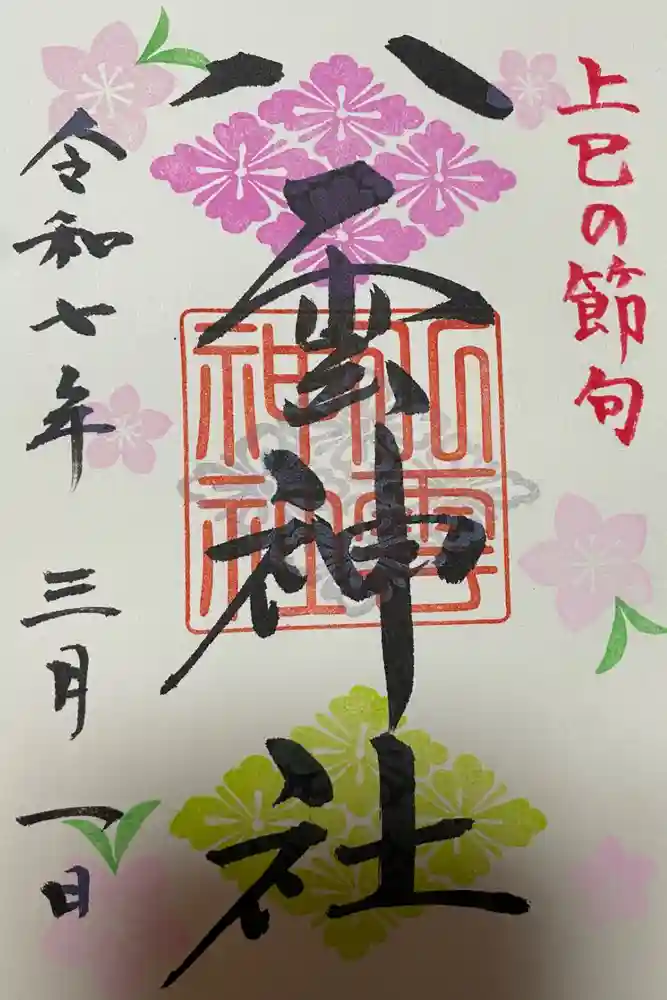 上巳の節句
八雲神社
八雲神社
令和七年 三月 一日